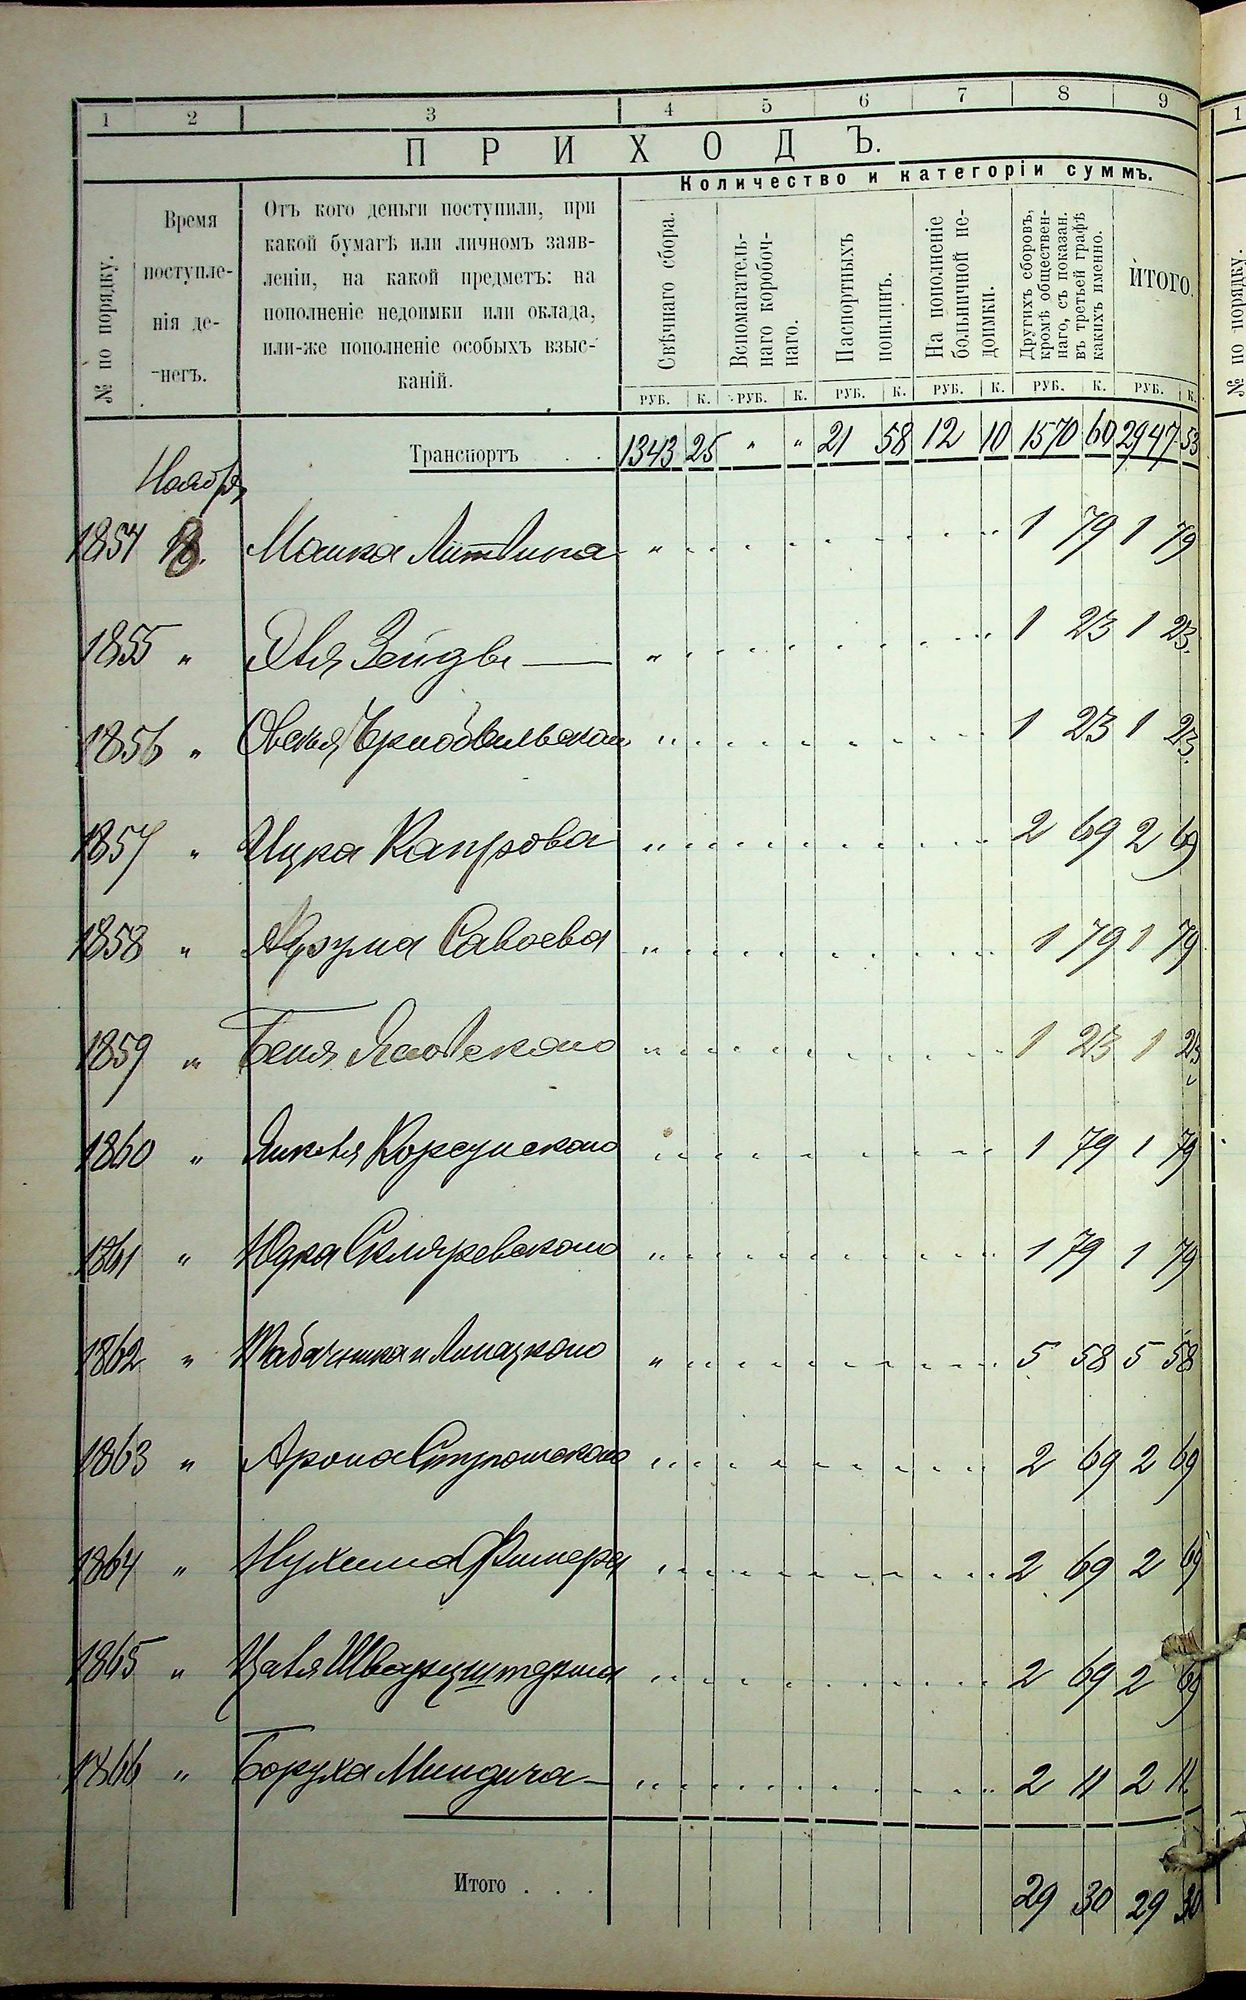 1 2 3 4 5 6 7 8 9
ПРИХОДЪ.
Количество и категоріи суммъ.
№ по порядку.
Время
поступле-
нія де-
негъ.
Отъ кого деньги поступили, при
какой бумагѣ или личномъ заяв-
леніи, на какой предметъ: на
пополненіе недоимки или оклада,
или-же пополненіе особыхъ взыс-
каній.
Свѣчнаго сбора.
Вспомагатель-
наго коробоч-
наго.
Паспортныхъ
пошлинъ.
На пополненіе
больничной не-
доимки.
Другихъ сборовъ,
кромѣ обществен-
наго, съ показан.
въ третьей графѣ
какихъ именно.
ИТОГО.
РУБ. К. РУБ. К. РУБ. К. РУБ. К. РУБ. К. РУБ. К.
Транспортъ . . 1343 25 " " 21 58 12 10 1570 60 2947 53
Ноября
1854 18. Мошка Литвина 1 79 1 79
1855 " Зейды 1 23 1 23
1856 " Овсея Чернобыльского 1 23 1 23
1857 " Ицка Капрова 2 69 2 69
1858 " Савоева 1 79 1 79
1859 " Беня 1 23 1 23
1860 " Янкеля Корсунского 1 79 1 79
1861 " Юдка Скляревского 1 79 1 79
1862 " Табачника и Липацкого 5 58 5 58
1863 " Арона 2 69 2 69
1864 " Нухима Фишера 2 69 2 69
1865 " Шварцштерна 2 69 2 69
1866 " Боруха Миндича 2 11 2 11
Итого . . . 29 30 29 30
1
№ по порядку.